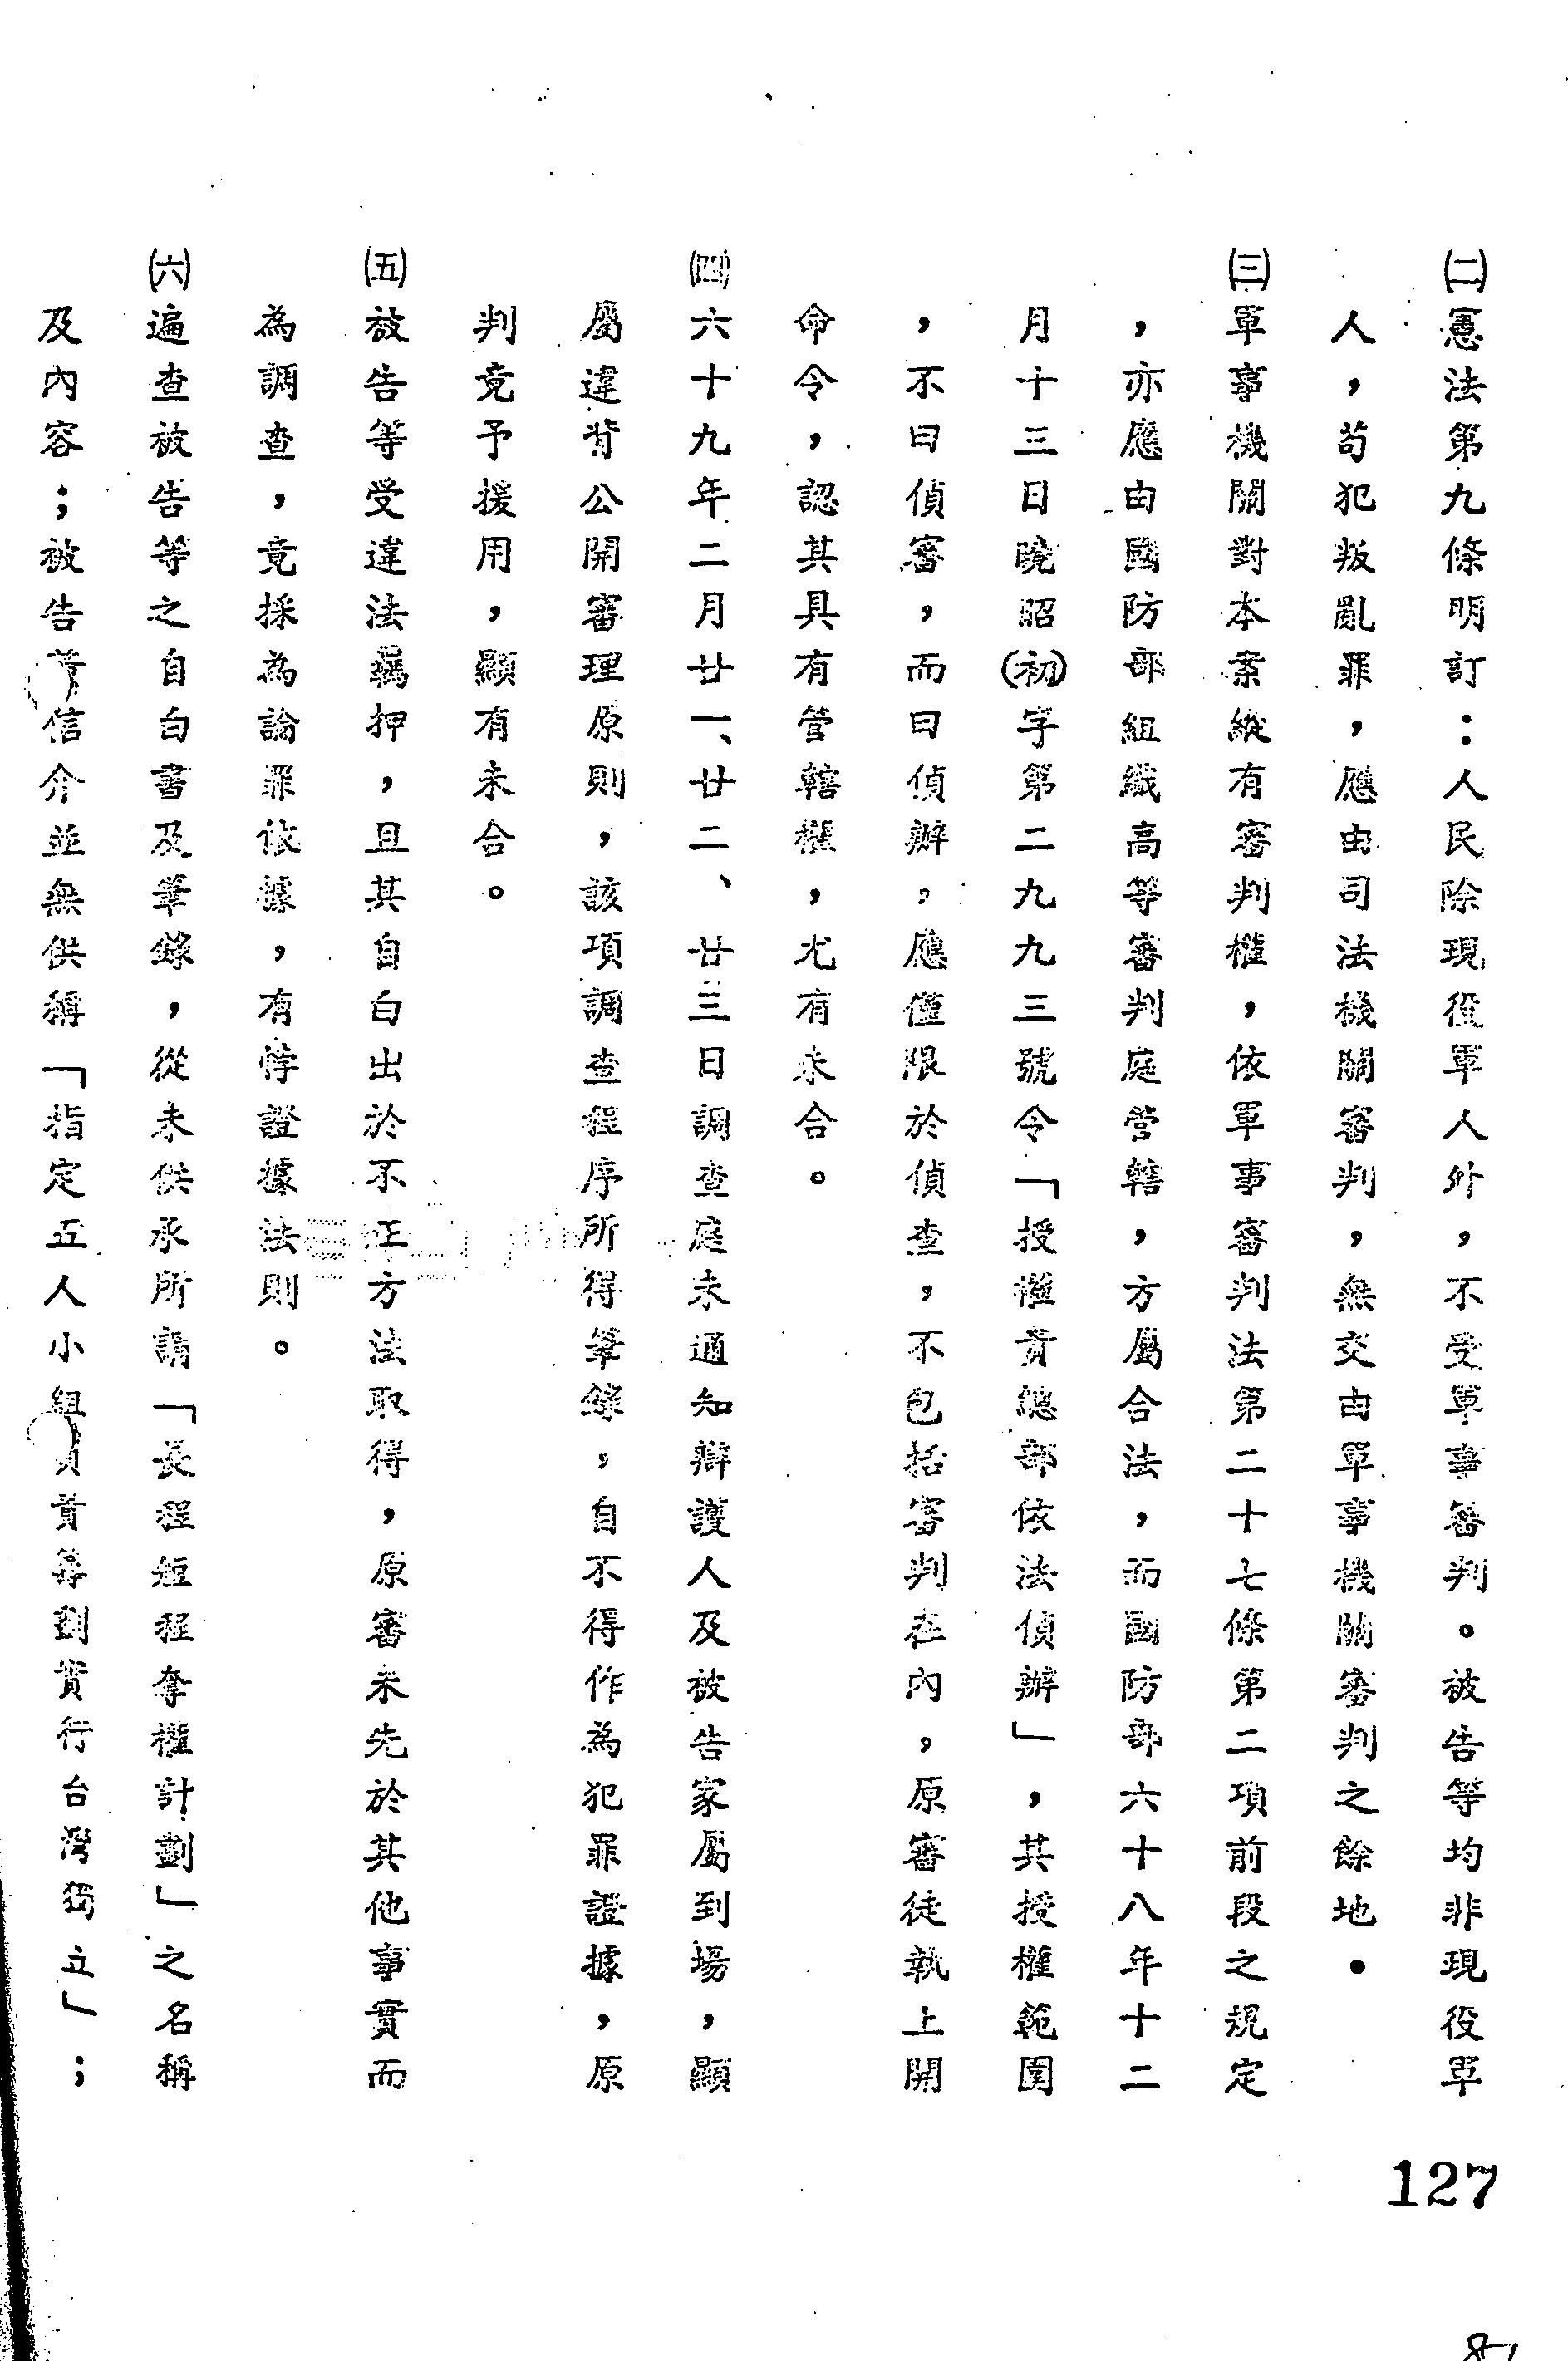 ㈡憲法第九條明訂：人民除現役軍人外，不受軍事審判。被告等均非現役軍
人，苟犯叛亂罪，應由司法機關審判，無交由軍事機關審判之餘地。
㈢軍事機關對本案縱有審判權，依軍事審判法第二十七條第二項前段之規定
，亦應由國防部組織高等審判庭管轄，方屬合法，而國防部六十八年十二
月十三日曉昭(初)字第二九九三號令「授權貴總部依法偵辦」，其授權範圍
，不曰偵審，而曰偵辦，應僅限於偵查，不包括審判在內，原審徒執上開
命令，認其具有管轄權，尤有未合。
㈣六十九年二月廿一、廿二、廿三日調查庭未通知辯護人及被告家屬到場，顯
屬違背公開審理原則，該項調查程序所得筆錄，自不得作為犯罪證據，原
判竟予援用，顯有未合。
㈤放告等受違法羈押，且其自白出於不正方法取得，原審未先於其他事實而
為調查，竟採為論罪依據，有悖證據法則。
㈥遍查被告等之自白書及筆錄，從未供承所謂「長程短程奪權計劃」之名稱
及內容；被告信介並無供稱「指定五人小組負責籌劃實行台灣獨立」；
127